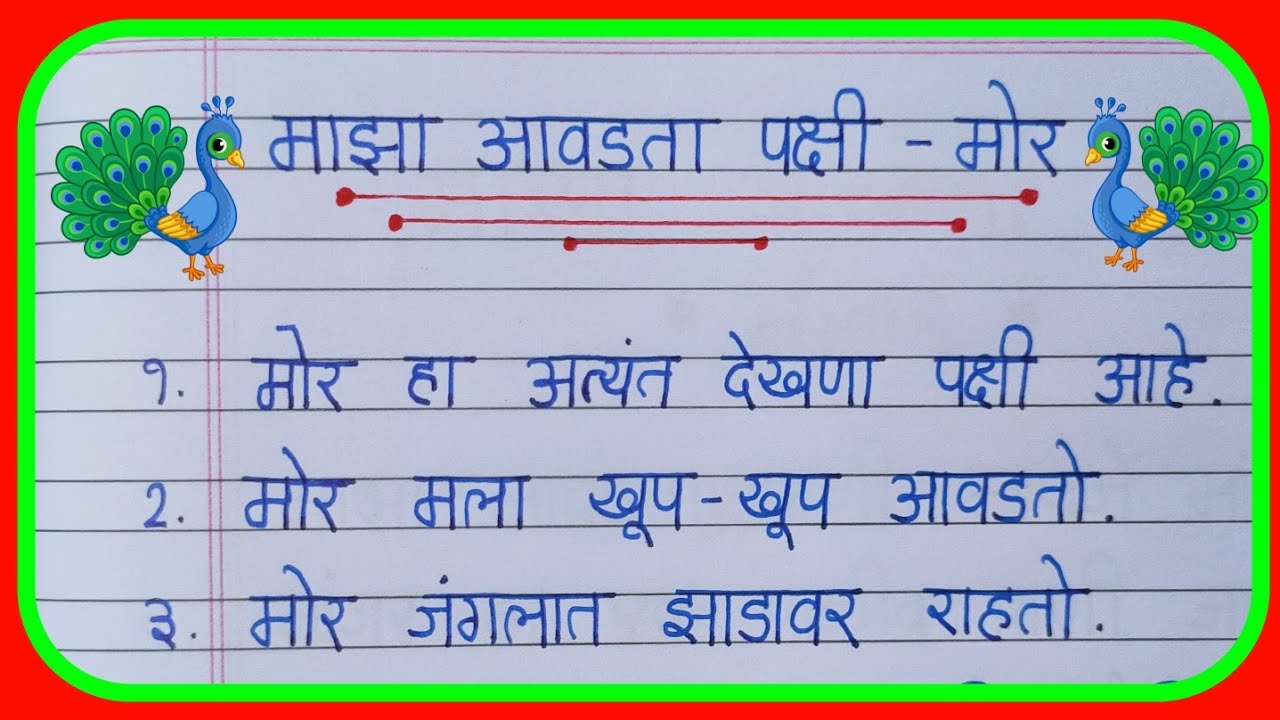 माझा आवडता पक्षी - मोर
१. मोर हा अत्यंत देखणा पक्षी आहे.
२. मोर मला खूप-खूप आवडतो.
३. मोर जंगलात झाडावर राहतो.